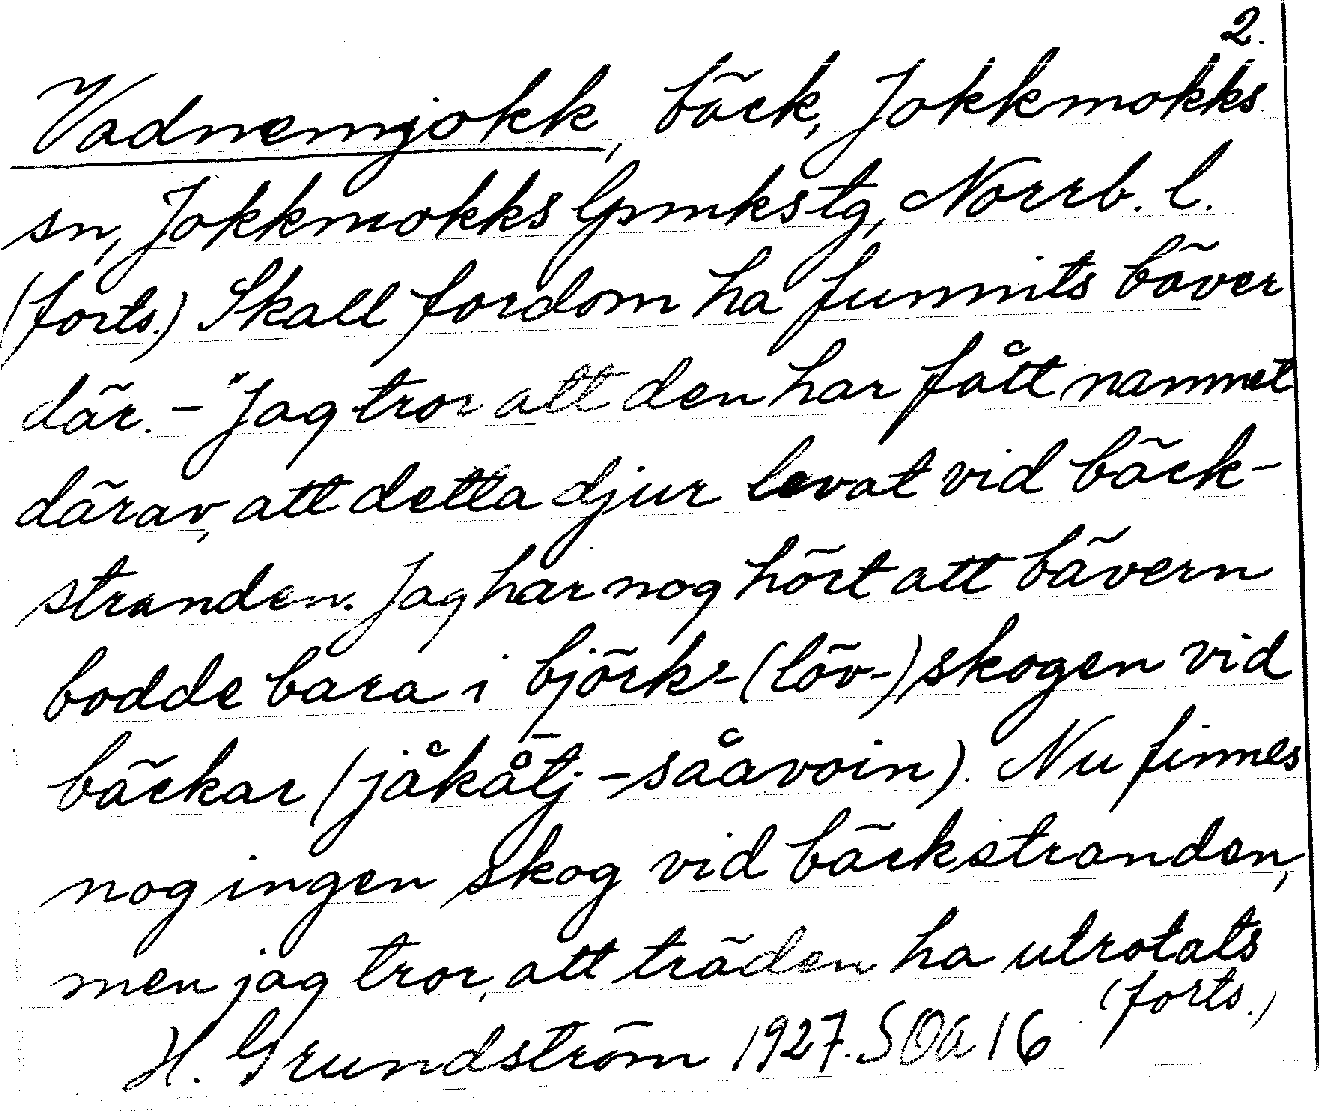 2.
Vadnemjokk, bäck, Jokkmokks
sn, Jokkmokks lpmkstg, Norrb. l.
(forts.) Skall fordom ha funnits bäver
där. - "Jag tror att den har fått namnet
därav, att detta djur levat vid bäck-
stranden. Jag har nog hört att bävern
bodde bara i björk- (löv-) skogen vid
bäckar (jåkåtj-såavoin). Nu finnes
nog ingen skog vid bäckstranden,
men jag tror, att träden ha utrotats
(forts.)
H. Grundström 1927. SOa 16